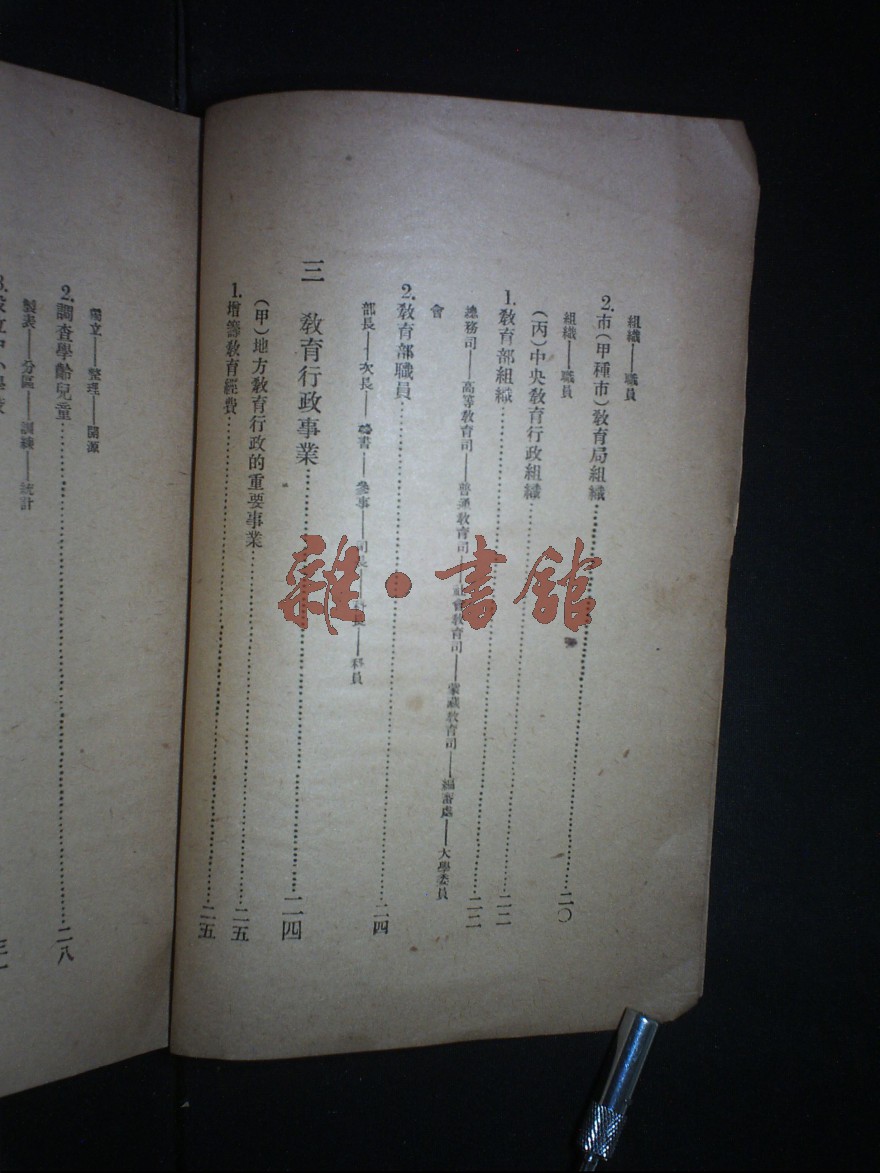 組織——職員
2. 市（甲種市）教育局組織……二〇
組織——職員
（丙）中央教育行政組織……二二
1. 教育部組織……二二
總務司——高等教育司——普通教育司——社會教育司——蒙藏教育司——編審處——大學委員
會
2. 教育部職員……二四
部長——次長——秘書——參事——司長——科長——科員
三 教育行政事業……二四
（甲）地方教育行政的重要事業……二五
1. 增籌教育經費……二五
獨立——整理——開源
2. 調查學齡兒童……二八
製表——分區——訓練——統計
雜·書館